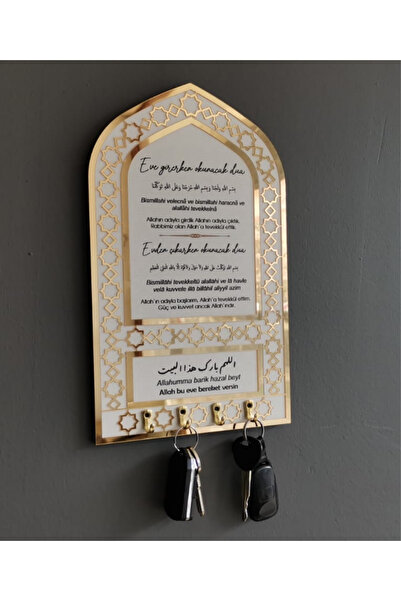 Eve girerken okunacak dua
بِسْمِ اللهِ وَلَجْنَا وَبِسْمِ اللهِ خَرَجْنَا وَعَلَى اللهِ تَوَكَّلْنَا
Bismillahi velecnâ ve bismillahi haracnâ ve
alallâhi tevekkelnâ
Allahın adıyla girdik Allahın adıyla çıktık.
Rabbimiz olan Allah'a tevekkül ettik.
Evden çıkarken okunacak dua
بِسْمِ اللهِ تَوَكَّلْتُ عَلَى اللهِ وَلَا حَوْلَ وَلَا قُوَّةَ إِلَّا بِاللهِ الْعَلِيِّ الْعَظِيمِ
Bismillâhi tevekkeltü alallâhi ve lâ havle
velâ kuvvete illâ billâhil aliyyil azim
Allah'ın adıyla başlarım, Allah'a tevekkül ettim.
Güç ve kuvvet ancak Allah'ındır.
اللهم بارك هذا البيت
Allahumma barik hazal beyt
Allah bu eve bereket versin